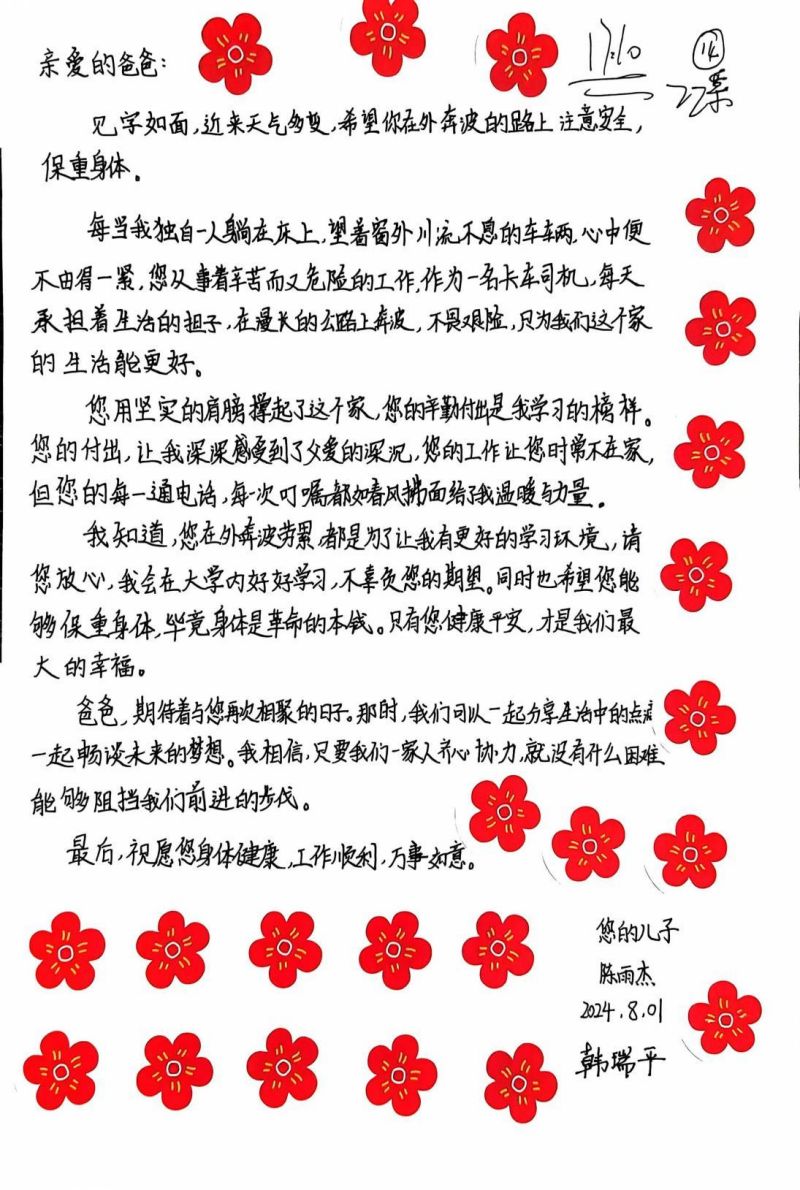 亲爱的爸爸：
17:10
见字如面，近来天气多变，希望你在外奔波的路上注意安全，
保重身体。
每当我独自一人躺在床上，望着窗外川流不息的车辆，心中便
不由得一紧，您从事着辛苦而又危险的工作，作为一名卡车司机，每天
承担着生活的担子，在漫长的公路上奔波，不畏艰险，只为我们这个家
的生活能更好。
您用坚实的肩膀撑起了这个家，您的辛勤付出是我学习的榜样。
您的付出，让我深深感受到了父爱的深沉，您的工作让您时常不在家，
但您的每一通电话，每一次叮嘱都如春风拂面给了我温暖与力量。
我知道，您在外奔波劳累，都是为了让我有更好的学习环境，请
您放心，我会在大学内好好学习，不辜负您的期望。同时也希望您能
够保重身体，毕竟身体是革命的本钱。只有您健康平安，才是我们最
大的幸福。
爸爸，期待着与您再次相聚的日子。那时，我们可以一起分享生活中的点滴
一起畅谈未来的梦想。我相信，只要我们一家人齐心协力，就没有什么困难
能够阻挡我们前进的步伐。
最后，祝愿您身体健康，工作顺利，万事如意。
您的儿子
陈雨杰
2024.8.01
韩瑞平